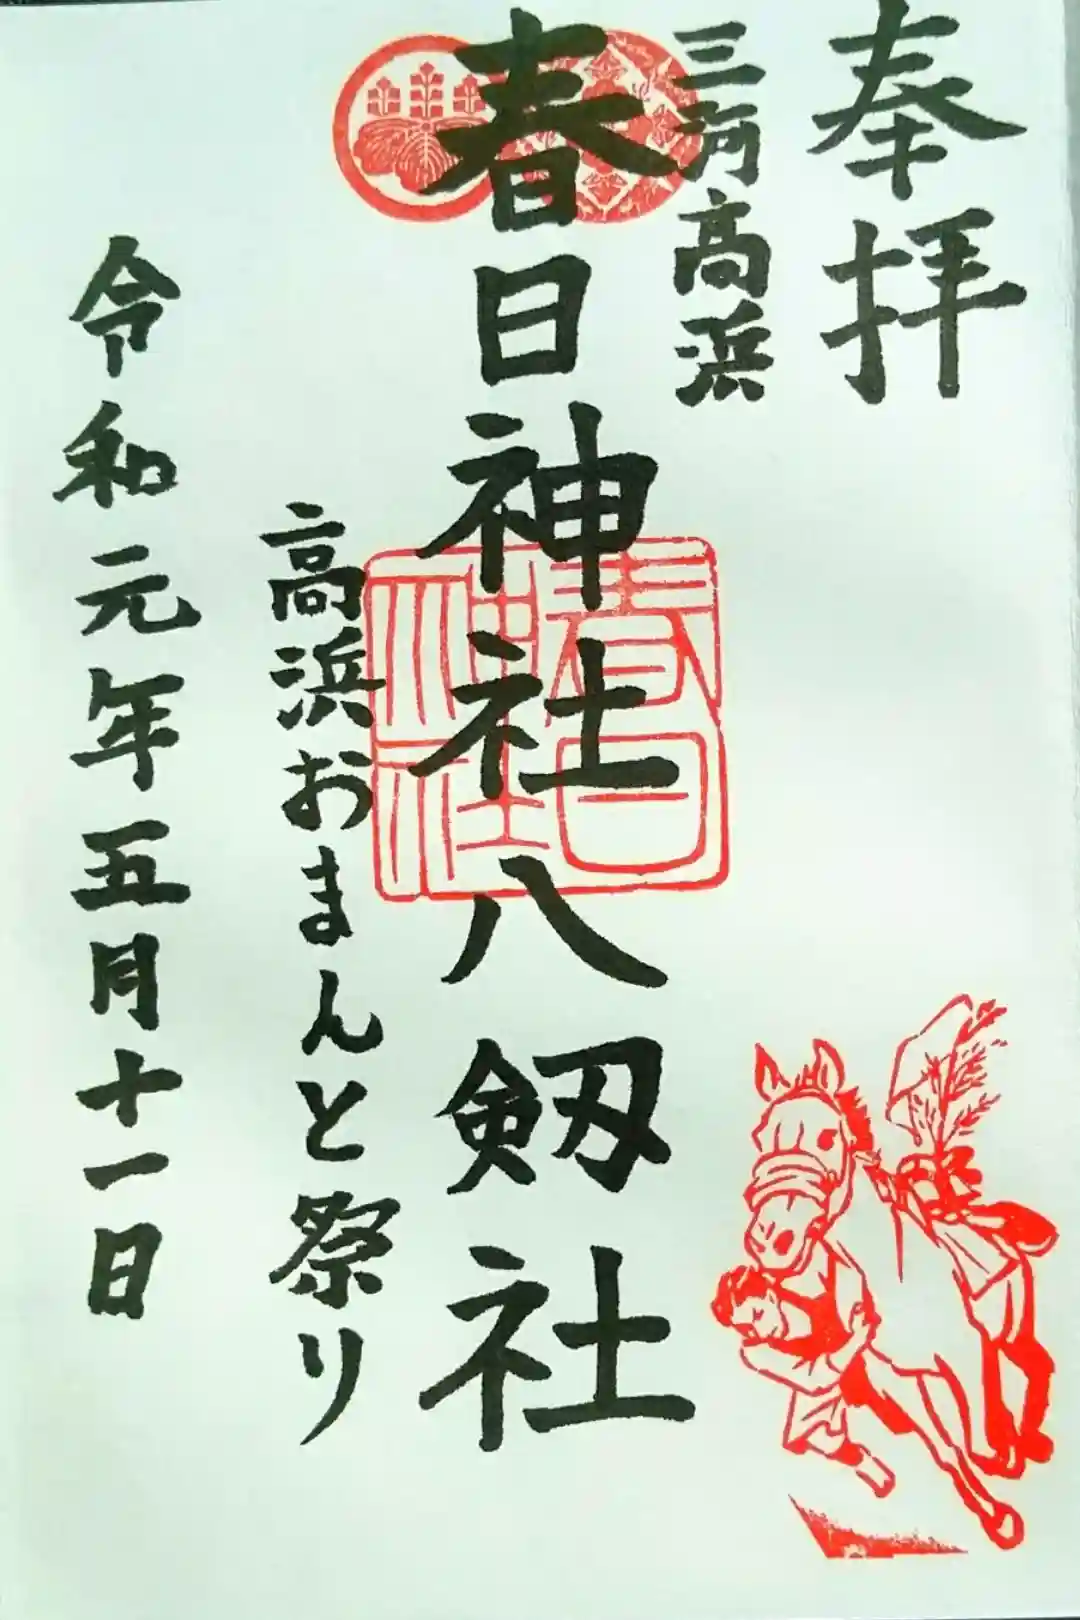 奉拝
三河高浜
春日神社八剱社
春日
神社
高浜おまんと祭り
令和元年五月十一日